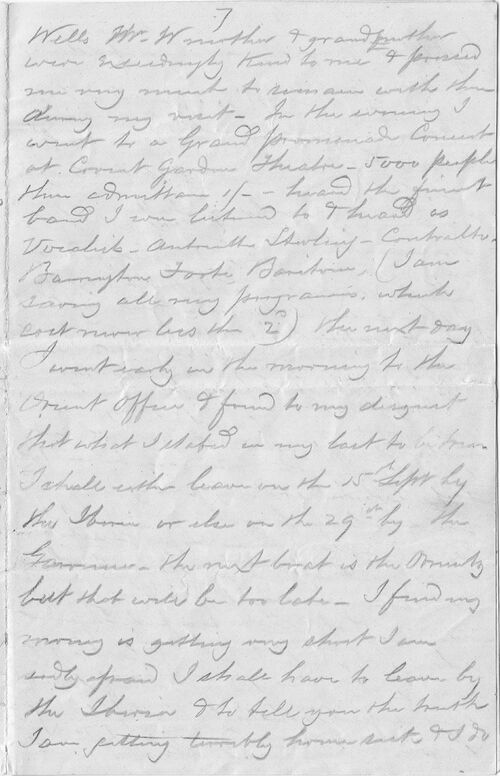 7
Wells Mr. W mother & grandmother
were exceedingly kind to me & pressed
me very much to remain with them
during my visit - In the evening I
went to a Grand Promenade Concert
at Covent Garden Theatre - 5000 people
there admittance 1/- - heard the finest
band I ever listened to & heard as
Vocalists - Antoinette Sterling - Contralto -
Barrington Foote Baritone, (I am
saving all my programs, which
cost never less than 2d) the next day
I went early in the morning to the
Orient Office & found to my disgust
that what I stated in my last to be true
I shall either leave on the 15th Sept by
the Iberia or else on the 29th by the
Garonne - the next boat is the Orient
but that will be too late - I find my
money is getting very short I am
sadly afraid I shall have to leave by
the Iberia & to tell you the truth
I am getting terribly home sick & I do